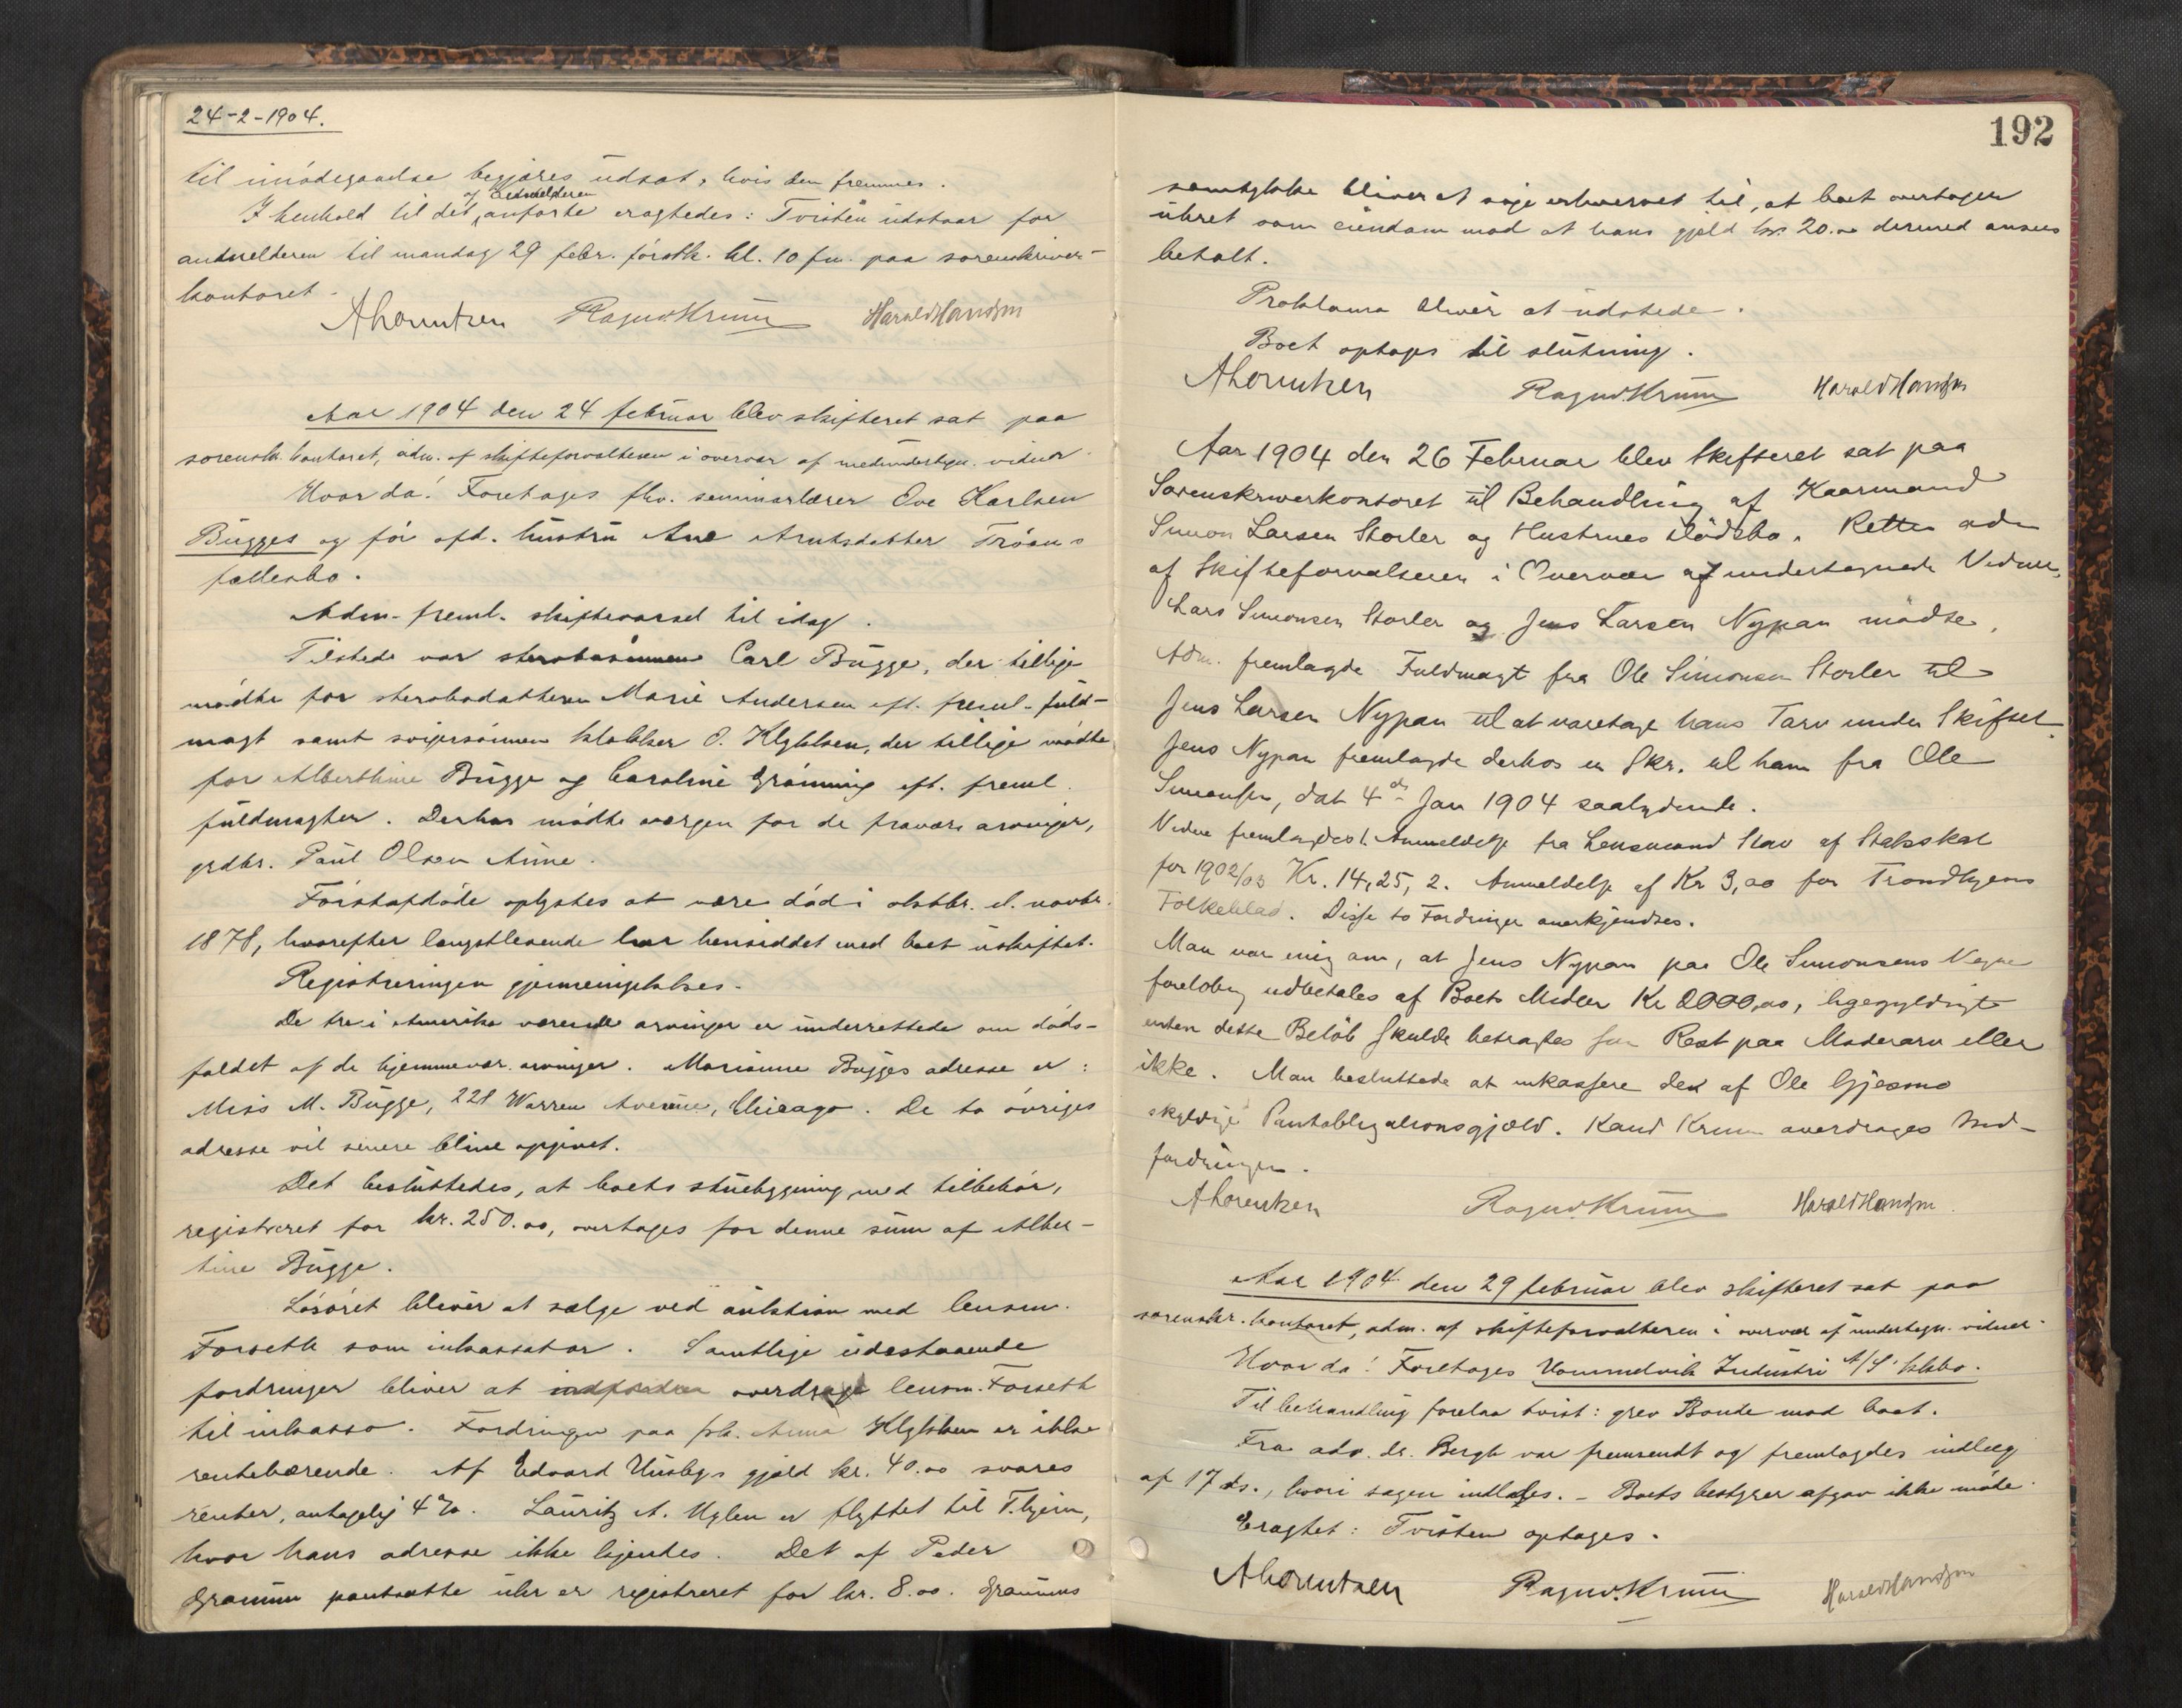 24-2-1904.
til imødegaaelse begjæres udsat, hvis den fremmes.
af anmelderen
I henhold til det anførte eragtedes: Tvisten udstaar for
anmelderen til mandag 29 febr. førstk. kl. 10 fm. paa sorenskriver-
kontoret.
ALorentzen Ragnv.Krum HaraldHansen
Aar 1904 den 24 februar blev skifteret sat paa
sorensk. kontoret, adm. af skifteforvalteren i overvær af medundertegn. vidner
Hvorda! Foretages fhv. seminarlærer Ove Karlsen
Bugges og før afd. hustru Ane Arntsdatter Trøens
fællesbo.
Adm. freml. skiftevarsel til idag.
Tilstede var sterbosønnen Carl Bugge, der tillige
mødte for sterbodatteren Marie Andersen eft. freml. fuld-
magt samt svigersønnen klokker O. Klykken, der tillige mødte
for Alberthine Bugge og Caroline Grønning eft. freml.
fuldmagter. Derhos mødte værgen for de fravær. arvinger,
grdbr. Paul Olsen Aune.
Førstafdøde oplystes at være død i oktbr. el. novbr.
1878, hvorefter længstlevende har hensiddet med boet uskiftet.
Registreringen gjennemgikkes.
De tre i Amerika værende arvinger er underrettede om døds-
faldet af de hjemmevær. arvinger. Marianne Bugges adresse er:
Miss M. Bugge, 221 Warren Avenue, Chicago. De to øvriges
adresse vil senere blive opgivet.
Det besluttedes, at boets stuebygning med tilbehør,
registreret for kr. 250.00, overtages for denne sum af Alber-
tine Bugge.
Løsøret bliver at sælge ved auktion med lensm.
Forseth som inkassator. Samtlige udestaaende
fordringer bliver at overdrage lensm. Forseth
til inkasso. Fordringen paa frk. Anna Klykken er ikke
rentebærende. Af Edvard Husbys gjæld kr. 40.00 svares
renter, antagelig 4%. Lauritz A. Uglen er flyttet til T.hjem,
hvor hans adresse ikke kjendes. Det af Peder
Gramm pantsatte uhr er registreret for kr. 8.00. Gramms
192
samtykke bliver at søge erhvervet til, at boet overtager
uhret som eiendom mod at hans gjæld kr. 20.00 dermed ansees
betalt.
Proklama bliver at udstede.
Boet optages til slutning.
ALorentzen Ragnv.Krum HaraldHansen
Aar 1904 den 26 Februar blev Skifteret sat paa
Sorenskriverkontoret til Behandling af Kaarmand
Simon Larsen Storler og Hustrues Dødsbo. Retten adm
af Skifteforvalteren i Overvær af undertegnede Vidner.
Lars Simonsen Storler og Jens Larsen Nypan mødte.
Adm. fremlagde Fuldmagt fra Ole Simonsen Storler til
Jens Larsen Nypan til at varetage hans Tarv under Skiftet.
Jens Nypan fremlagde derhos en Skr. til ham fra Ole
Simonsen, dat 4de Jan 1904 saalydende.
Videre fremlagdes 1. Anmeldelse fra Lensmand Stav af Statsskat
for 1902/03 Kr. 14,25, 2. Anmeldelse af Kr 3,00 for Trondhjems
Folkeblad. Disse to Fordringer anerkjendtes.
Man var enig om, at Jens Nypan paa Ole Simonsens Vegne
foreløbig udbetales af Boets Midler Kr 2000,00, ligegyldigt
enten dette Beløb skulde betragtes som Rest paa Moderarv eller
ikke. Man besluttede at inkassere den af Ole Gjesmo
skyldige Pantobligationsgjæld. Kand Krum overdrages Ind-
fordringen.
ALorentzen Ragnv.Krum HaraldHansen.
Aar 1904 den 29 februar blev skifteret sat paa
sorenskr. kontoret, adm. af skifteforvalteren i overvær af undertegn. vidner
Hvorda! Foretages Hommelvik Industri A/S' kkbo.
Til behandling forelaa tvist: grev Bonde mod boet.
Fra adv. dr. Bergh var fremsendt og fremlagdes indlæg
af 17 ds., hvori sagen indlades. - Boets bestyrer afgav ikke møde.
Eragtet: Tvisten optages.
ALorentzen Ragnv.Krum HaraldHansen